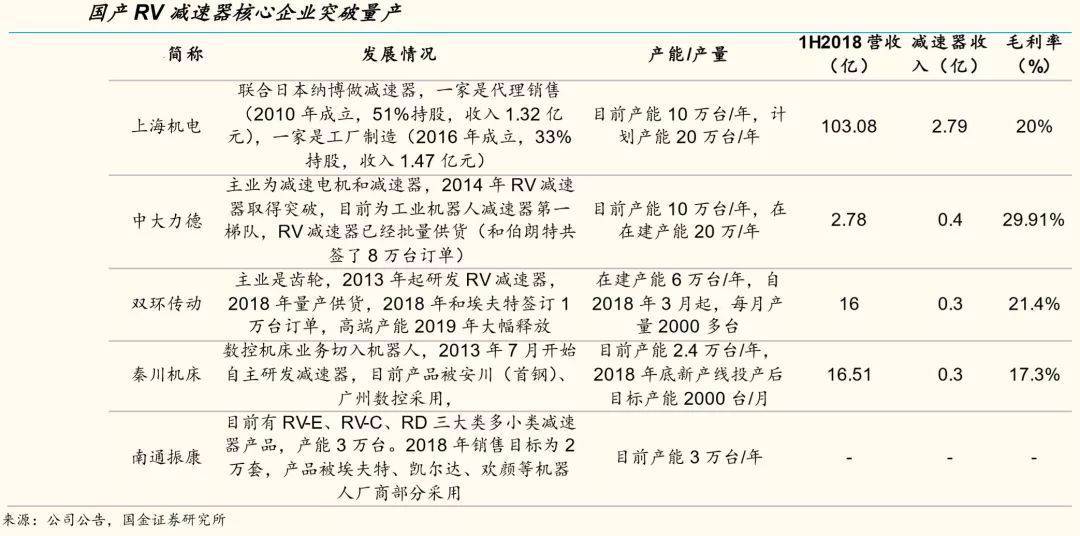 国产 RV 减速器核心企业突破量产
简称 发展情况 产能/产量 1H2018 营收（亿） 减速器收入（亿） 毛利率（%）
联合日本纳博做减速器，一家是代理销售
（2010 年成立，51%持股，收入 1.32 亿
元），一家是工厂制造（2016 年成立，33%
持股，收入 1.47 亿元）
上海机电
目前产能 10 万台/年，计
划产能 20 万台/年
103.08 2.79 20%
主业为减速电机和减速器，2014 年 RV 减速
器取得突破，目前为工业机器人减速器第一
梯队，RV 减速器已经批量供货（和伯朗特共
签了 8 万台订单）
中大力德
目前产能 10 万台/年，在
在建产能 20 万/年
2.78 0.4 29.91%
主业是齿轮，2013 年起研发 RV 减速器，
2018 年量产供货，2018 年和埃夫特签订 1
万台订单，高端产能 2019 年大幅释放
双环传动
在建产能 6 万台/年，自
2018 年 3 月起，每月产
量 2000 多台
16 0.3 21.4%
数控机床业务切入机器人，2013 年 7 月开始
自主研发减速器，目前产品被安川（首钢）、
广州数控采用，
秦川机床
目前产能 2.4 万台/年，
2018 年底新产线投产后
目标产能 2000 台/月
16.51 0.3 17.3%
目前有 RV-E、RV-C、RD 三大类多小类减速
器产品，产能 3 万台。2018 年销售目标为 2
万套，产品被埃夫特、凯尔达、欢颜等机器
人厂商部分采用
南通振康
目前产能 3 万台/年
- - -
来源：公司公告，国金证券研究所